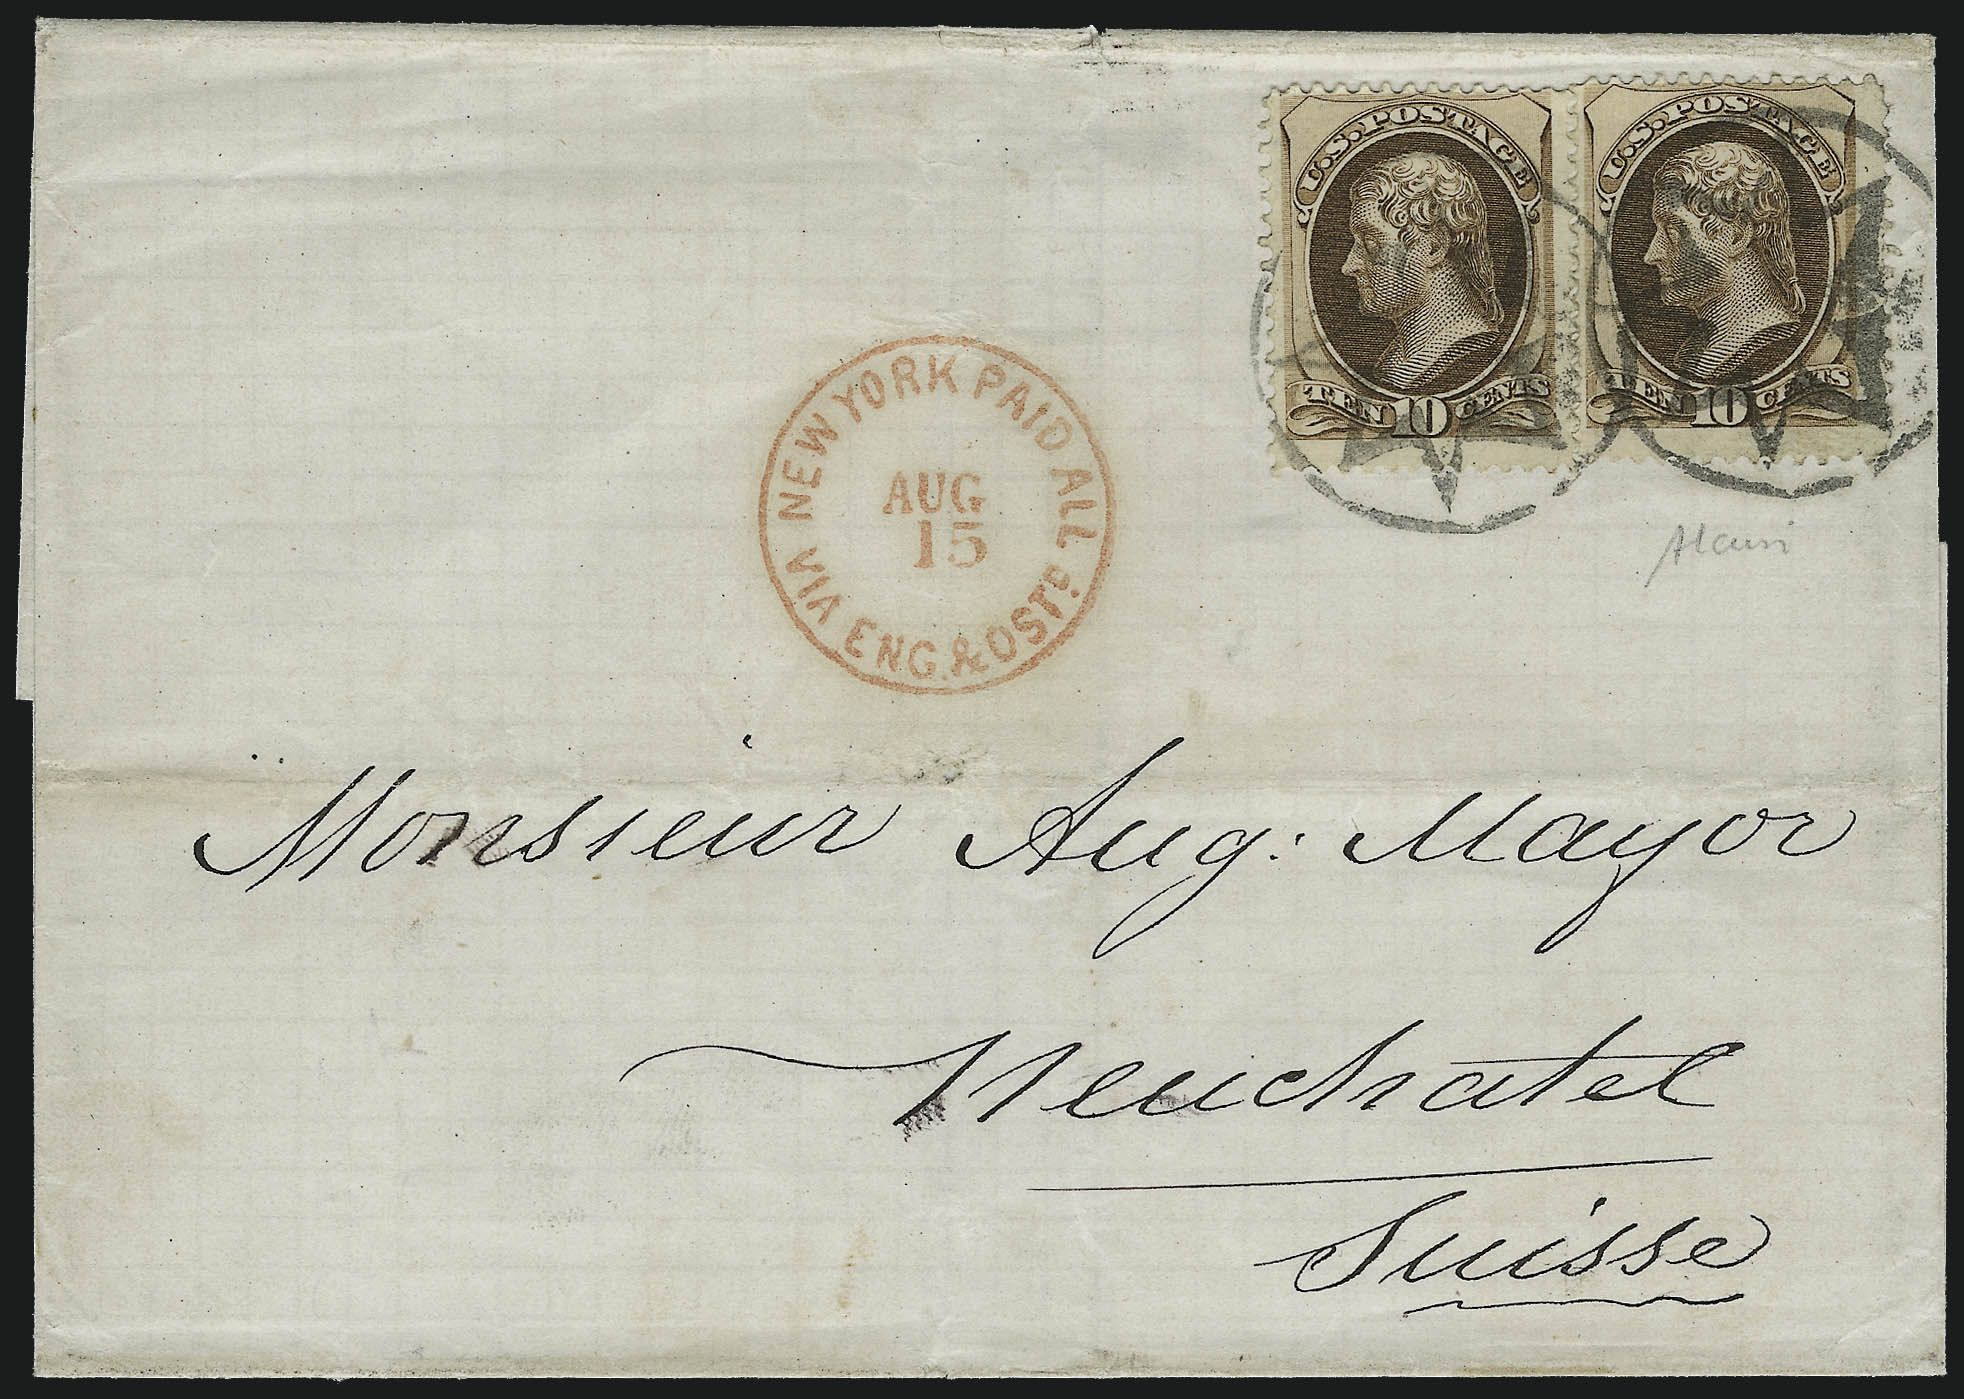 U.S. POSTAGE
TEN 10 CENTS
U.S. POSTAGE
TEN 10 CENTS
NEW YORK PAID ALL
VIA ENG. & OSTD.
AUG
15
Monsieur Aug: Mayor
Neuchatel
Suisse